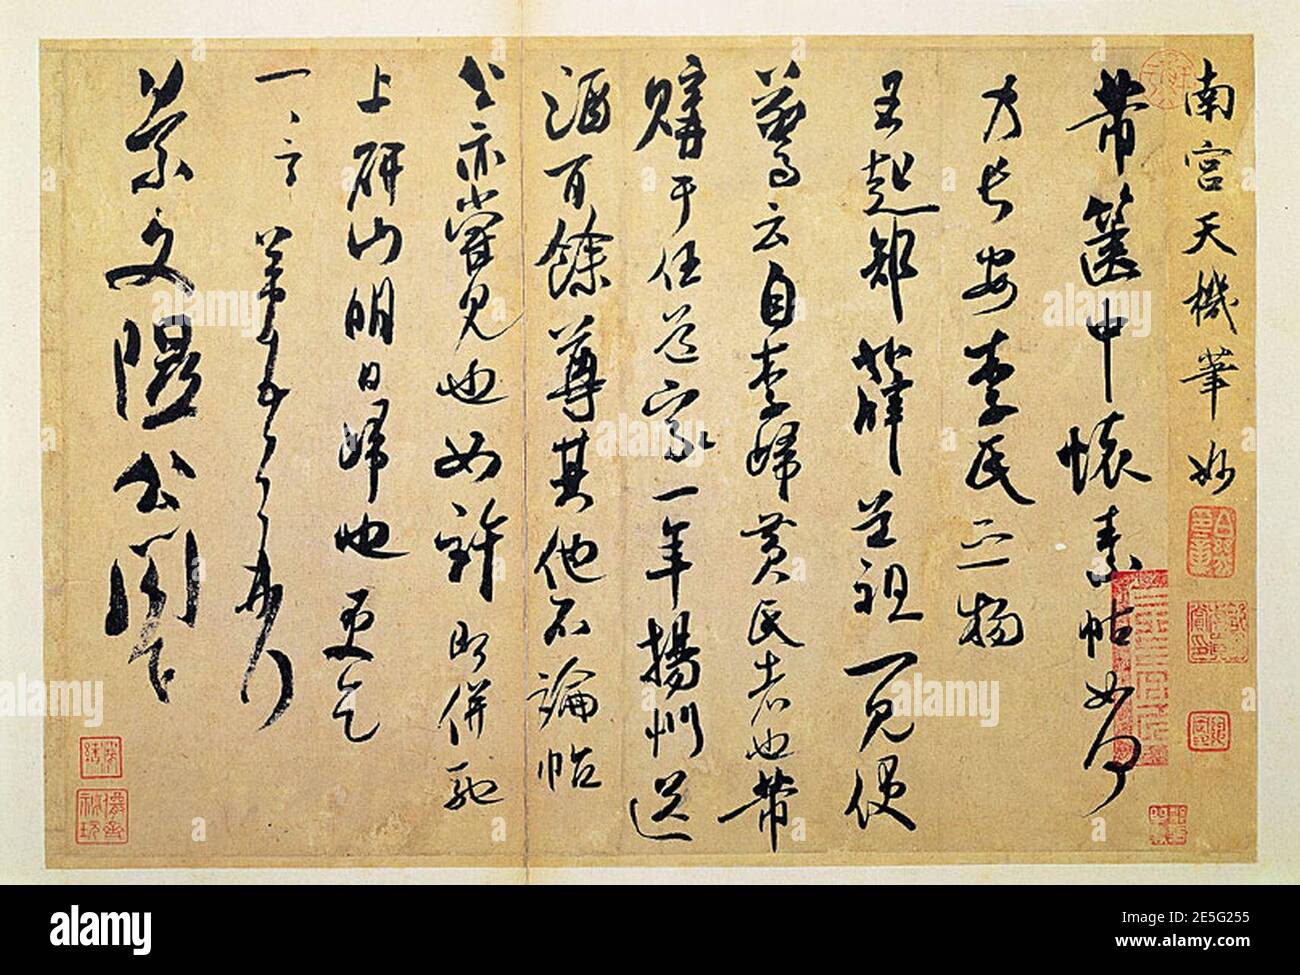 南宮天機筆妙
芾篋中懷素帖如何
乃長安李氏之物
王起部薛道祖一見便
驚云自李歸黃氏者也芾
購于任道家一年揚州送
酒百餘尊其他不論帖
公亦嘗見也如許即併馳
上研山明日歸也更乞
一言芾頓首再拜
景文隰公閣下
alamy
Image ID: 2E5G255
www.alamy.com